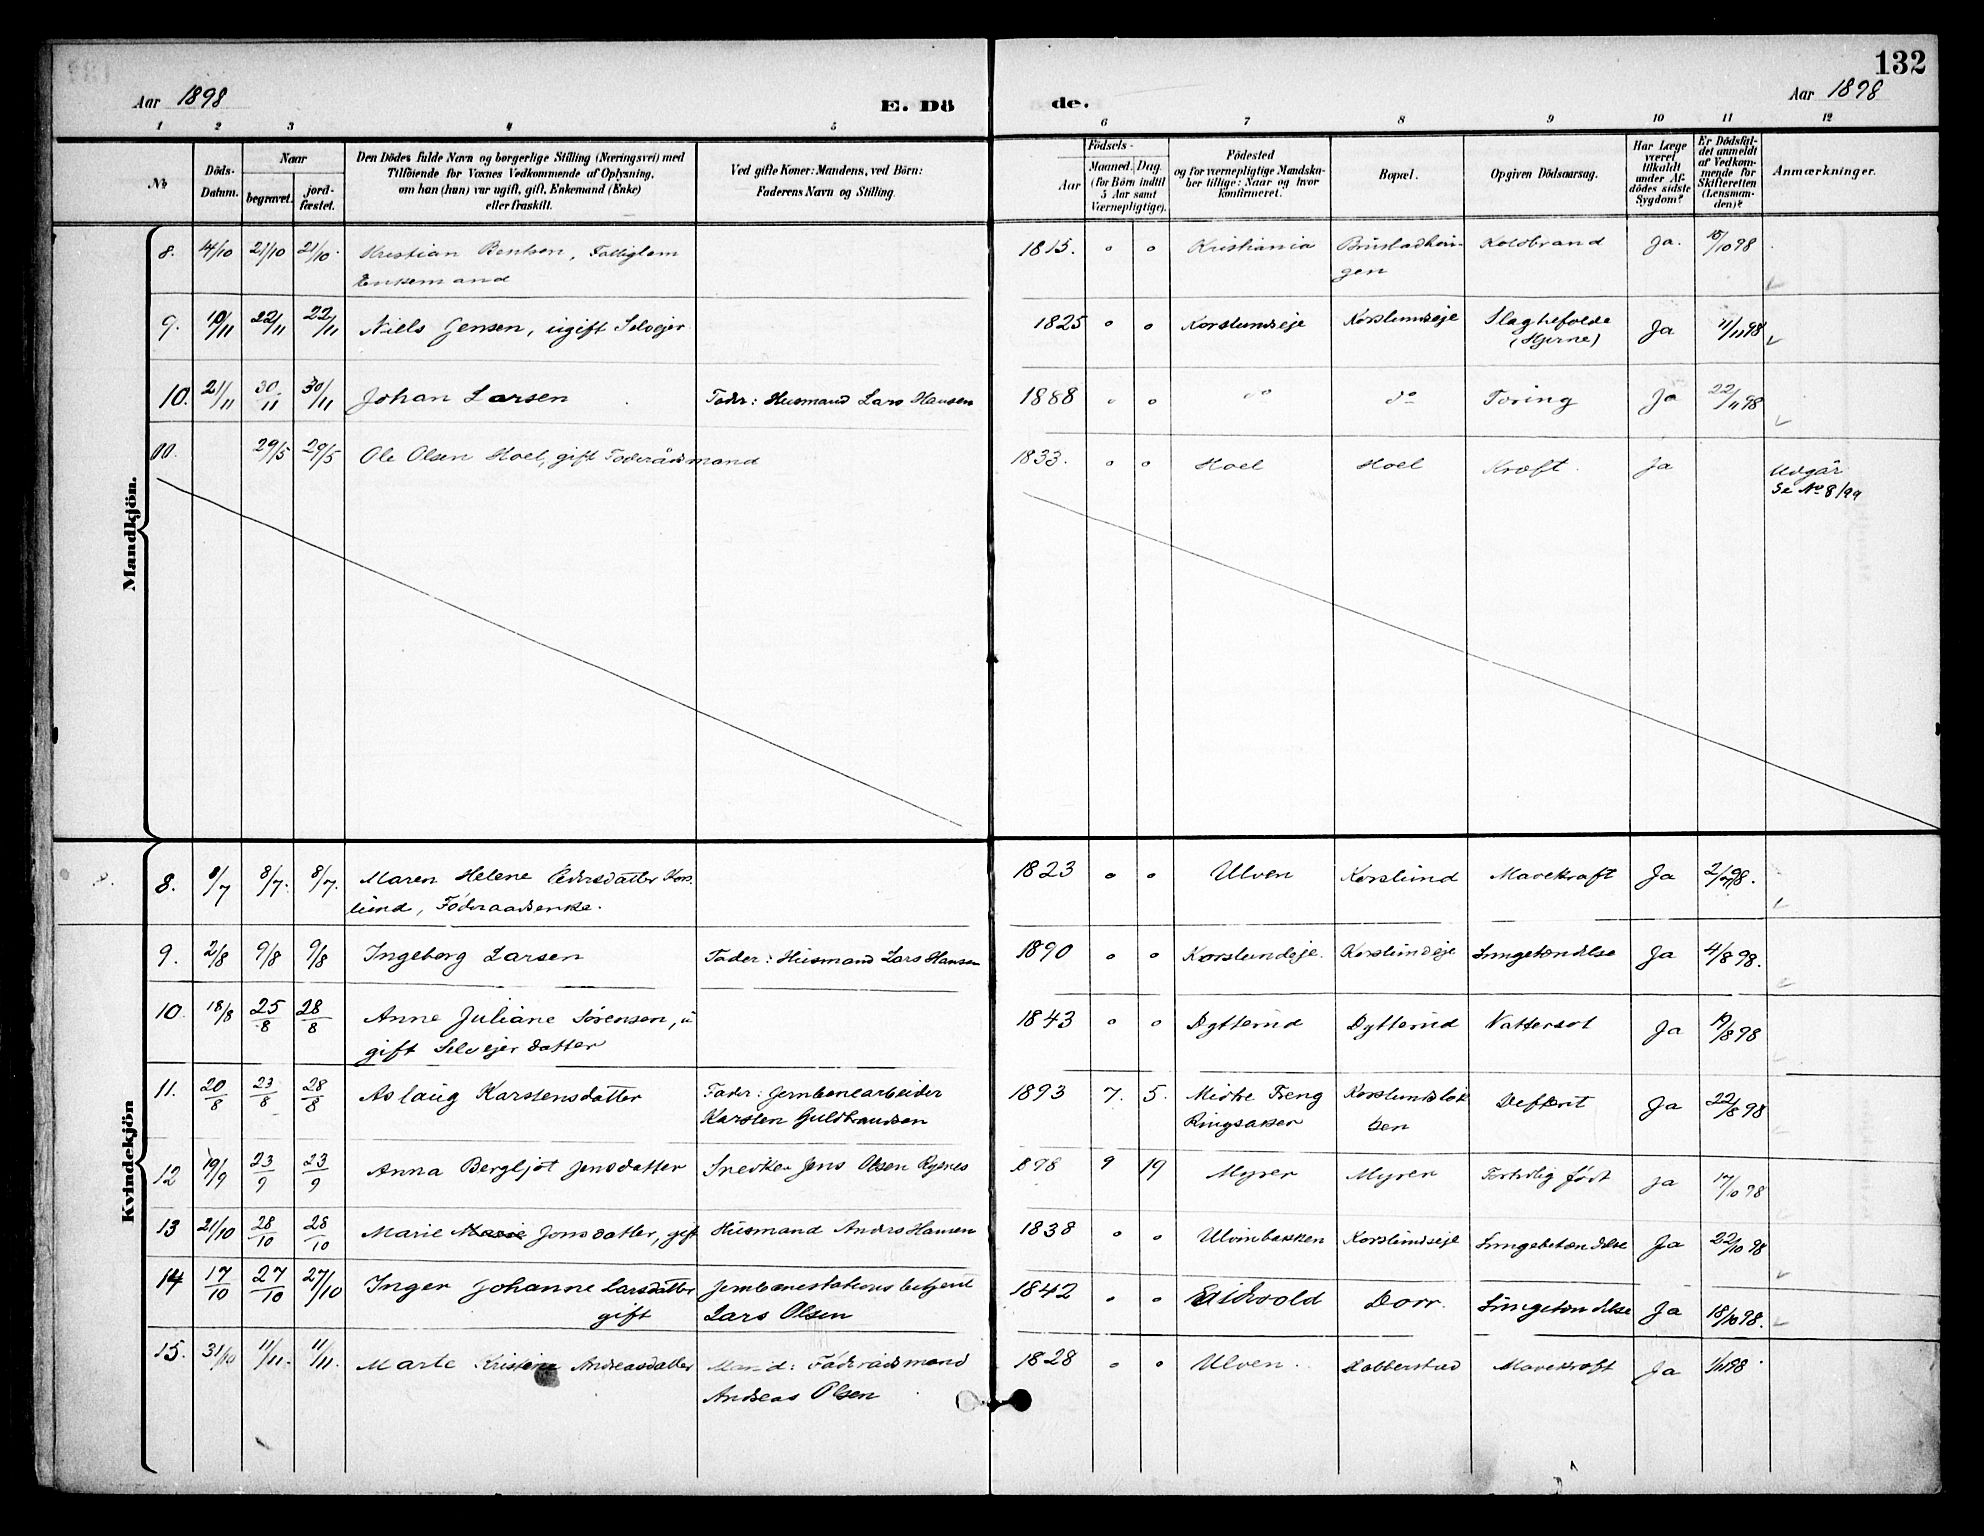 132
Aar 1898
E. Döde.
Aar 1898
1 2 3 4 5 6 7 8 9 10 11 12
No
Döds-Datum.
Naar
begravet.
jordfæstet.
Den Dödes fulde Navn og borgerlige Stilling (Næringsvei) med
Tilföiende for Voxnes Vedkommende af Oplysning,
om han (hun) var ugift, gift, Enkemand (Enke)
eller fraskilt.
Ved gifte Koner: Mandens, ved Börn:
Faderens Navn og Stilling.
Födsels-
Aar
Maaned. Dag.
(for Börn indtil
5 Aar samt
Værnepligtige).
Födested
og for værnepligtige Mandskaber tillige: Naar og hvor
konfirmeret.
Bopæl.
Opgiven Dödsaarsag.
Har Læge
været
tilkaldt
under Afdödes sidste
Sygdom?
Er Dödsfaldet anmeldt
af Vedkommende for
Skifteretten
(Lensmanden)?
Anmærkninger.
Mandkjön.
8. 14/10 21/10 21/10. Kristian Bentsen, Fattiglem 1815. " " Kristiania Brustadhein- Koldbrand Ja. 15/10 98
Enkemand gen
9. 10/11 22/11 22/11 Niels Jensen, ugift Selvejer 1825 " " Korslundseje Korslundseje Slagtefolde Ja 11/11 98
(Hjerne)
10. 21/11 30/11 30/11 Johan Larsen Fader: Husmand Lars Hansen 1888 " " do do Tæring Ja 22/11 98
00. 29/5 29/5 Ole Olsen Hoel, gift Føderådsmand 1833. " " Hoel Hoel Kræft. Ja Udgår
Se No 8/99
Kvindekjön
8. 8/7. 8/7. Maren Helene Pedersdatter Kors- 1823 " " Ulven Korslund Mavekræft Ja 2/7 98.
lund, Føderaadsenke.
9. 2/8 9/8 9/8 Ingeborg Larsen Fader: Husmand Lars Hansen 1890 " " Korslundseje. Korslundseje Lungebetændelse Ja 4/8 98.
10. 18/8 25/8 28/8 Anne Juliane Sørensen, u 1843 " " Dytterud Dytterud Vattersot Ja 19/8 98
gift Selvejerdatter
11. 20/8 23/8 28/8 Aslaug Karstensdatter Fader: Jernbanearbeider 1893 7. 5. Midtre Freng Korslundsløk Defterit Ja 22/8 98
Karsten Guldbrandsen Ringsaker ken
12 19/9 23/9 23/9 Anna Bergljot Jensdatter Snedker Jens Olsen 898 9 19 Myrer Myrer Fortidlig født Ja 17/10 98
13 21/10 28/10 28/10 Marie Jonsdatter, gift Husmand Anders Hansen 1838 " " Ulvinbakken Korslundseje Lungebetændelse Ja 22/10 98
14 17/10 27/10 27/10 Inger Johanne Larsdatter Jernbanestations betjent 1842 " " Eidsvold Dorr. Lungebetændelse Ja 18/10 98.
gift Lars Olsen
15. 31/10 11/11. 11/11. Marte Kristine Andreasdatter Mand: Føderådsmand 1828 " " Ulven. Habberstad Mavekræft Ja
Andreas Olsen